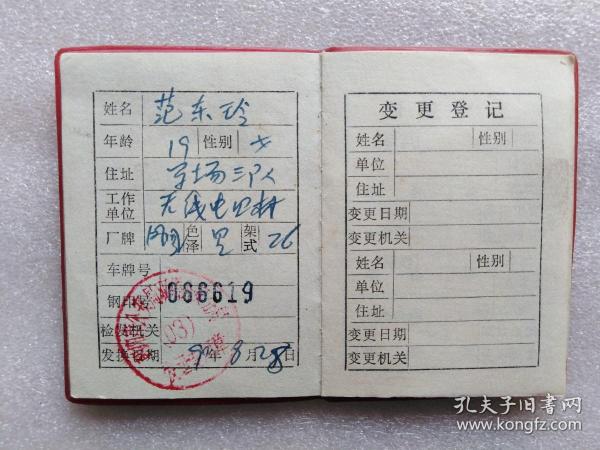 姓名 范东玲
年龄 19 性别 女
住址
工作单位 无线电
厂牌 色泽 黑 架式 26
车牌号
钢印号 086619
检发机关
发换日期 年8月28日
变更登记
姓名 性别
单位
住址
变更日期
变更机关
姓名 性别
单位
住址
变更日期
变更机关
孔夫子旧书网
www.kongfz.com